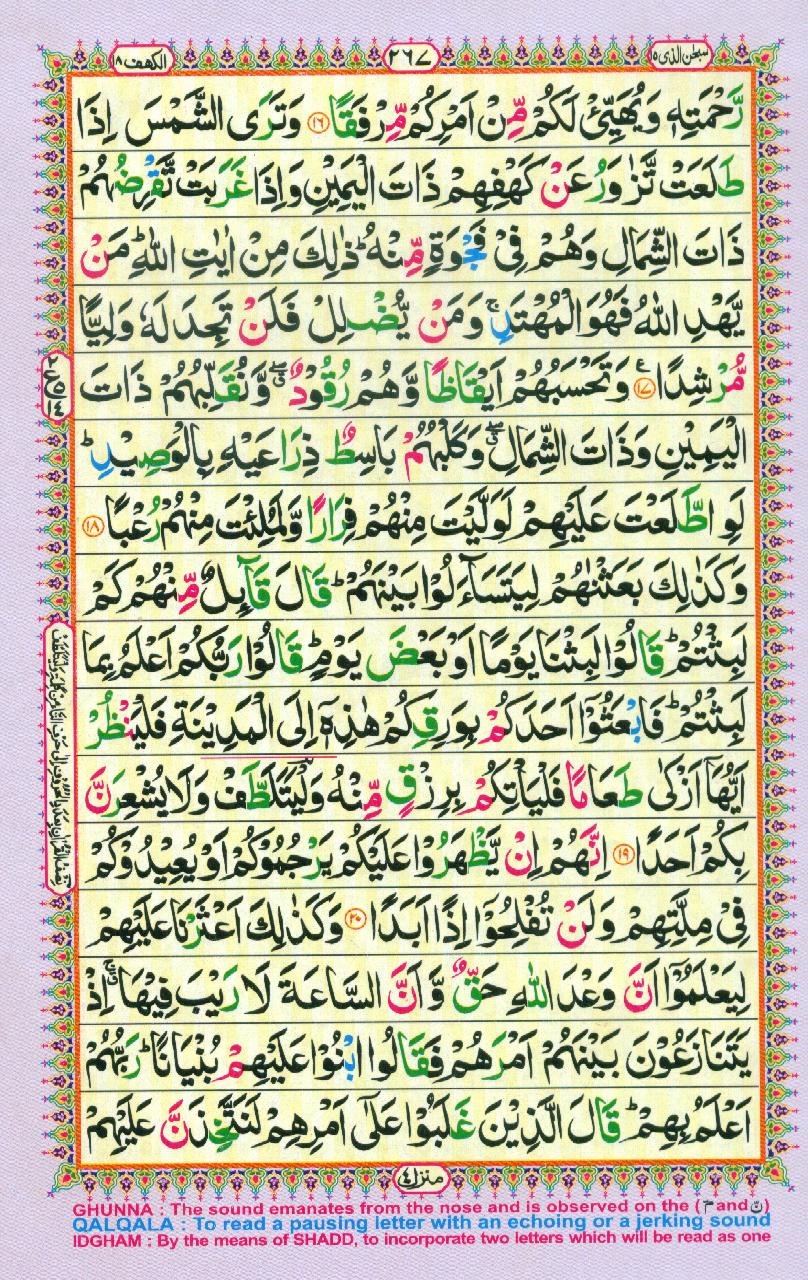 سبحٰن الذی ۱۵
۲۶۷
الکهف ۱۸
رَّحۡمَتِهٖ وَيُهَيِّئۡ لَـكُمۡ مِّنۡ اَمۡرِكُمۡ مِّرۡفَقًا ﴿۱۶﴾ وَتَرَى الشَّمۡسَ اِذَا
طَلَعَتۡ تَّزٰوَرُ عَنۡ كَهۡفِهِمۡ ذَاتَ الۡيَمِيۡنِ وَاِذَا غَرَبَتۡ تَّقۡرِضُهُمۡ
ذَاتَ الشِّمَالِ وَهُمۡ فِىۡ فَجۡوَةٍ مِّنۡهُ‌ ؕ ذٰلِكَ مِنۡ اٰيٰتِ اللّٰهِ‌ ؕ مَنۡ
يَّهۡدِ اللّٰهُ فَهُوَ الۡمُهۡتَدِ‌ ۚ وَمَنۡ يُّضۡلِلۡ فَلَنۡ تَجِدَ لَهٗ وَلِيًّا
مُّرۡشِدًا ﴿۱۷﴾ ع وَتَحۡسَبُهُمۡ اَيۡقَاظًا وَّهُمۡ رُقُوۡدٌ ‌ۖۗ وَنُقَلِّبُهُمۡ ذَاتَ
الۡيَمِيۡنِ وَذَاتَ الشِّمَالِ‌ ۖۗ وَكَلۡبُهُمۡ بَاسِطٌ ذِرَاعَيۡهِ بِالۡوَصِيۡدِ‌ ؕ
لَوِ اطَّلَعۡتَ عَلَيۡهِمۡ لَوَلَّيۡتَ مِنۡهُمۡ فِرَارًا وَّلَمُلِئۡتَ مِنۡهُمۡ رُعۡبًا ﴿۱۸﴾
وَكَذٰلِكَ بَعَثۡنٰهُمۡ لِيَتَسَآءَلُوۡا بَيۡنَهُمۡ‌ ؕ قَالَ قَآئِلٌ مِّنۡهُمۡ كَمۡ
لَبِثۡتُمۡ‌ ؕ قَالُوۡا لَبِثۡنَا يَوۡمًا اَوۡ بَعۡضَ يَوۡمٍ‌ ؕ قَالُوۡا رَبُّكُمۡ اَعۡلَمُ بِمَا
لَبِثۡتُمۡ ؕ فَابۡعَثُوۡۤا اَحَدَكُمۡ بِوَرِقِكُمۡ هٰذِهٖۤ اِلَى الۡمَدِيۡنَةِ فَلۡيَنۡظُرۡ
اَيُّهَاۤ اَزۡكٰى طَعَامًا فَلۡيَاۡتِكُمۡ بِرِزۡقٍ مِّنۡهُ وَلۡيَتَلَطَّفۡ وَلَا يُشۡعِرَنَّ
بِكُمۡ اَحَدًا ﴿۱۹﴾ اِنَّهُمۡ اِنۡ يَّظۡهَرُوۡا عَلَيۡكُمۡ يَرۡجُمُوۡكُمۡ اَوۡ يُعِيۡدُوۡكُمۡ
فِىۡ مِلَّتِهِمۡ وَلَنۡ تُفۡلِحُوۡۤا اِذًا اَبَدًا ﴿۲۰﴾ وَكَذٰلِكَ اَعۡثَرۡنَا عَلَيۡهِمۡ
لِيَـعۡلَمُوۡۤا اَنَّ وَعۡدَ اللّٰهِ حَقٌّ وَّاَنَّ السَّاعَةَ لَا رَيۡبَ فِيۡهَا ‌ۚ اِذۡ
يَتَنَازَعُوۡنَ بَيۡنَهُمۡ اَمۡرَهُمۡ‌ فَقَالُوا ابۡنُوۡا عَلَيۡهِمۡ بُنۡيَانًـا ‌ ؕ رَبُّهُمۡ
اَعۡلَمُ بِهِمۡ‌ؕ قَالَ الَّذِيۡنَ غَلَبُوۡا عَلٰٓى اَمۡرِهِمۡ لَـنَـتَّخِذَنَّ عَلَيۡهِمۡ
منزل ۴
GHUNNA : The sound emanates from the nose and is observed on the ( مّ and نّ )
QALQALA : To read a pausing letter with an echoing or a jerking sound
IDGHAM : By the means of SHADD, to incorporate two letters which will be read as one